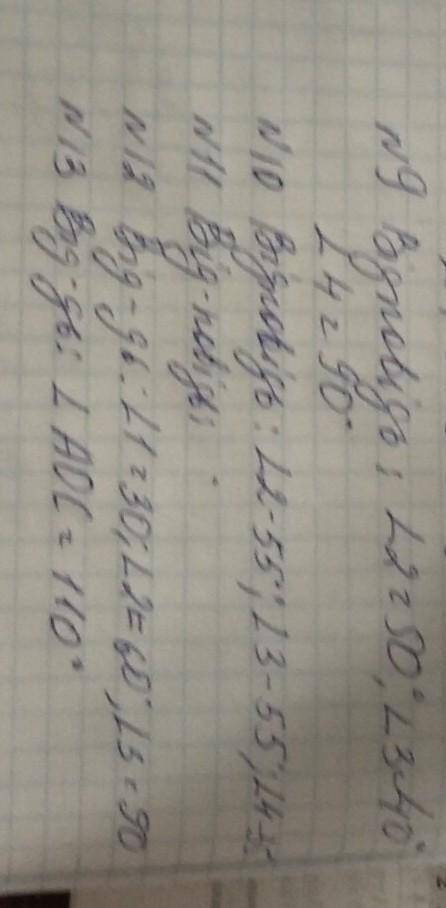 N9 Відповідь: L2=50°, L3=40°
L4=90°
N10 Відповідь: L2-55°, L3-55°, L4
N11 Від-повідь:
N12 Від-дь: L1=30°, L2=60°, L3=90
N13 Від-дь: L AOC = 110°